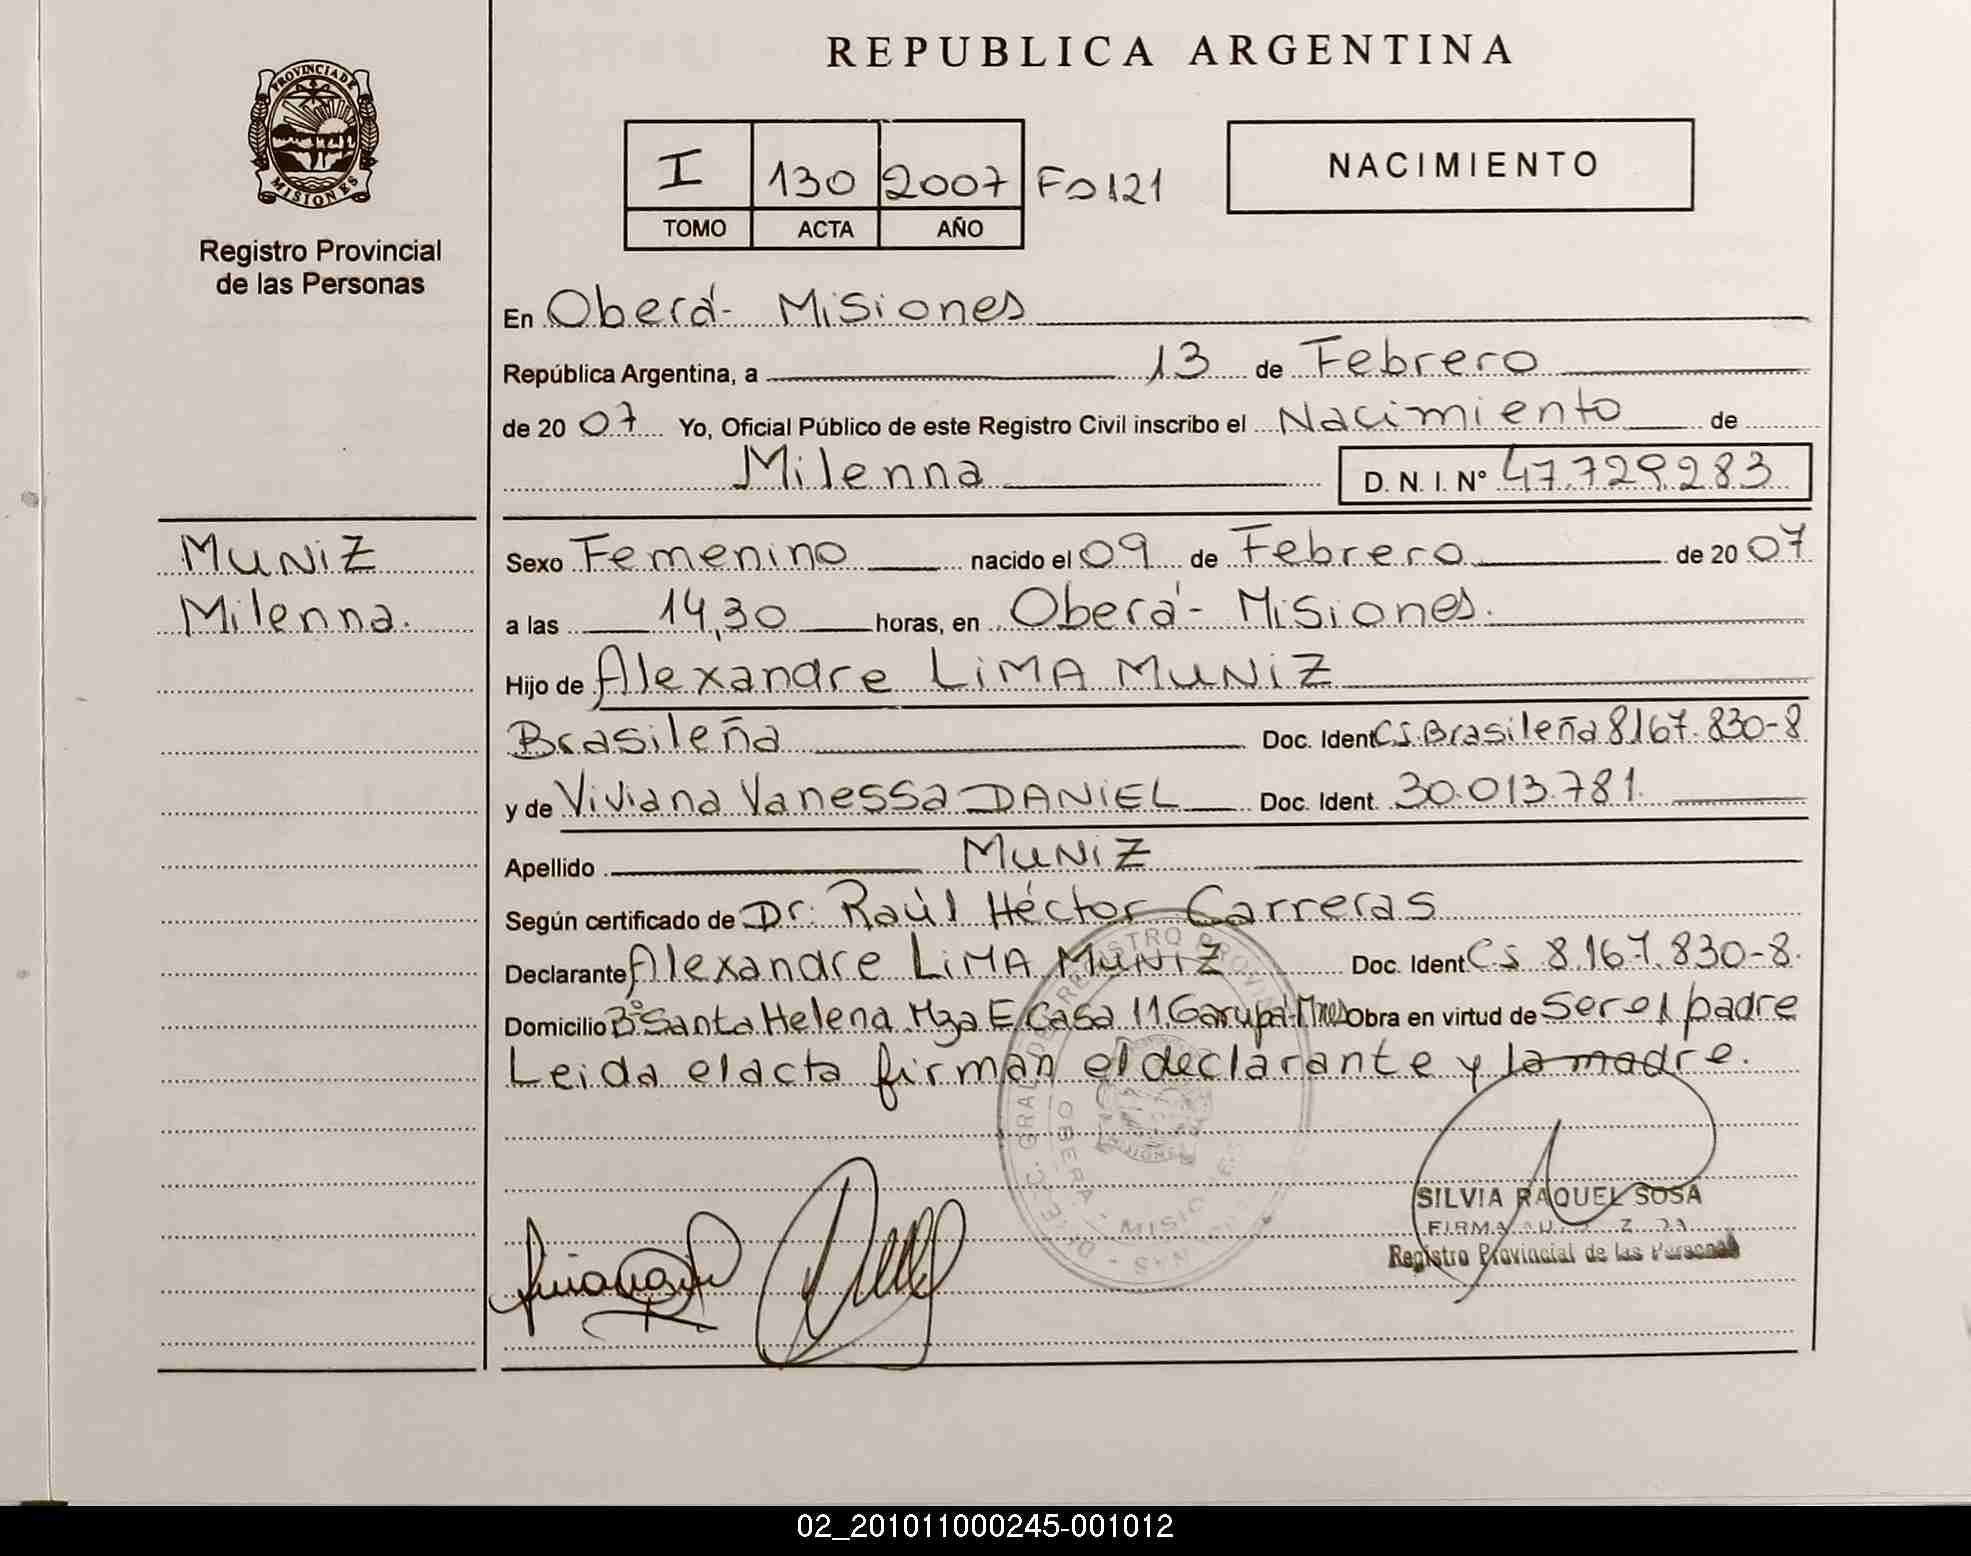 REPUBLICA ARGENTINA
PROVINCIA DE
MISIONES
Registro Provincial
de las Personas
I 130 2007 Fo 121
TOMO ACTA AÑO
NACIMIENTO
En Oberá- Misiones
República Argentina, a 13 de Febrero
de 2007 Yo, Oficial Público de este Registro Civil inscribo el Nacimiento de
Milenna D. N. I. Nº 47.729.283
MUNIZ
Milenna.
Sexo Femenino nacido el 09 de Febrero de 2007
a las 14,30 horas, en Oberá- Misiones.
Hijo de Alexandre LIMA MUNIZ
Brasileña Doc. Ident CS. Brasileña 8167.830-8
y de Viviana Vanessa DANIEL Doc. Ident. 30.013.781.
Apellido MUNIZ
Según certificado de Dr. Raúl Héctor Carreras
Declarante Alexandre LIMA MUNIZ Doc. Ident CS 8.167.830-8.
Domicilio Bº Santa Helena Mza E Casa 11, Garupá-Mnes Obra en virtud de Ser el padre
Leida el acta firman el declarante y la madre.
OBERA - MISIONES
SILVIA RAQUEL SOSA
Registro Provincial de las Personas
02_201011000245-001012